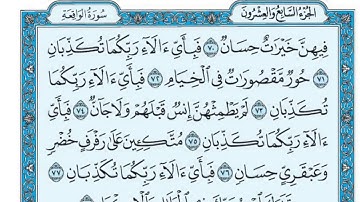 الجزء السابع والعشرون سورة الواقعة
فِيهِنَّ خَيْرَاتٌ حِسَانٌ ٧٠ فَبِأَيِّ ءَالَاءِ رَبِّكُمَا تُكَذِّبَانِ
٧١ حُورٌ مَقْصُورَاتٌ فِي الْخِيَامِ ٧٢ فَبِأَيِّ ءَالَاءِ رَبِّكُمَا
تُكَذِّبَانِ ٧٣ لَمْ يَطْمِثْهُنَّ إِنْسٌ قَبْلَهُمْ وَلَا جَانٌّ ٧٤ فَبِأَيِّ
ءَالَاءِ رَبِّكُمَا تُكَذِّبَانِ ٧٥ مُتَّكِئِينَ عَلَى رَفْرَفٍ خُضْرٍ
وَعَبْقَرِيٍّ حِسَانٍ ٧٦ فَبِأَيِّ ءَالَاءِ رَبِّكُمَا تُكَذِّبَانِ ٧٧